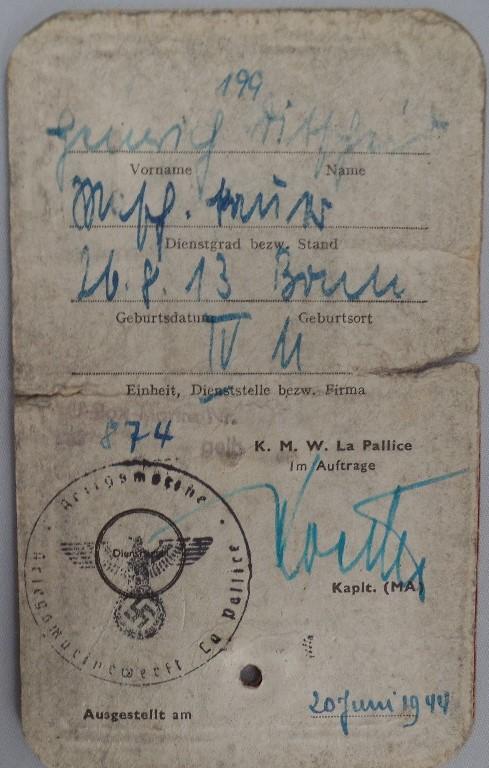 199
Heinrich
Vorname Name
Dienstgrad bezw. Stand
26.8.13 Bonn
Geburtsdatum Geburtsort
IV U
Einheit, Dienststelle bezw. Firma
874
K. M. W. La Pallice
Im Auftrage
Kriegsmarine
Kriegsmarinewerft La Pallice
Dienstsiegel
Kaplt. (MA)
Ausgestellt am 20 Juni 1944